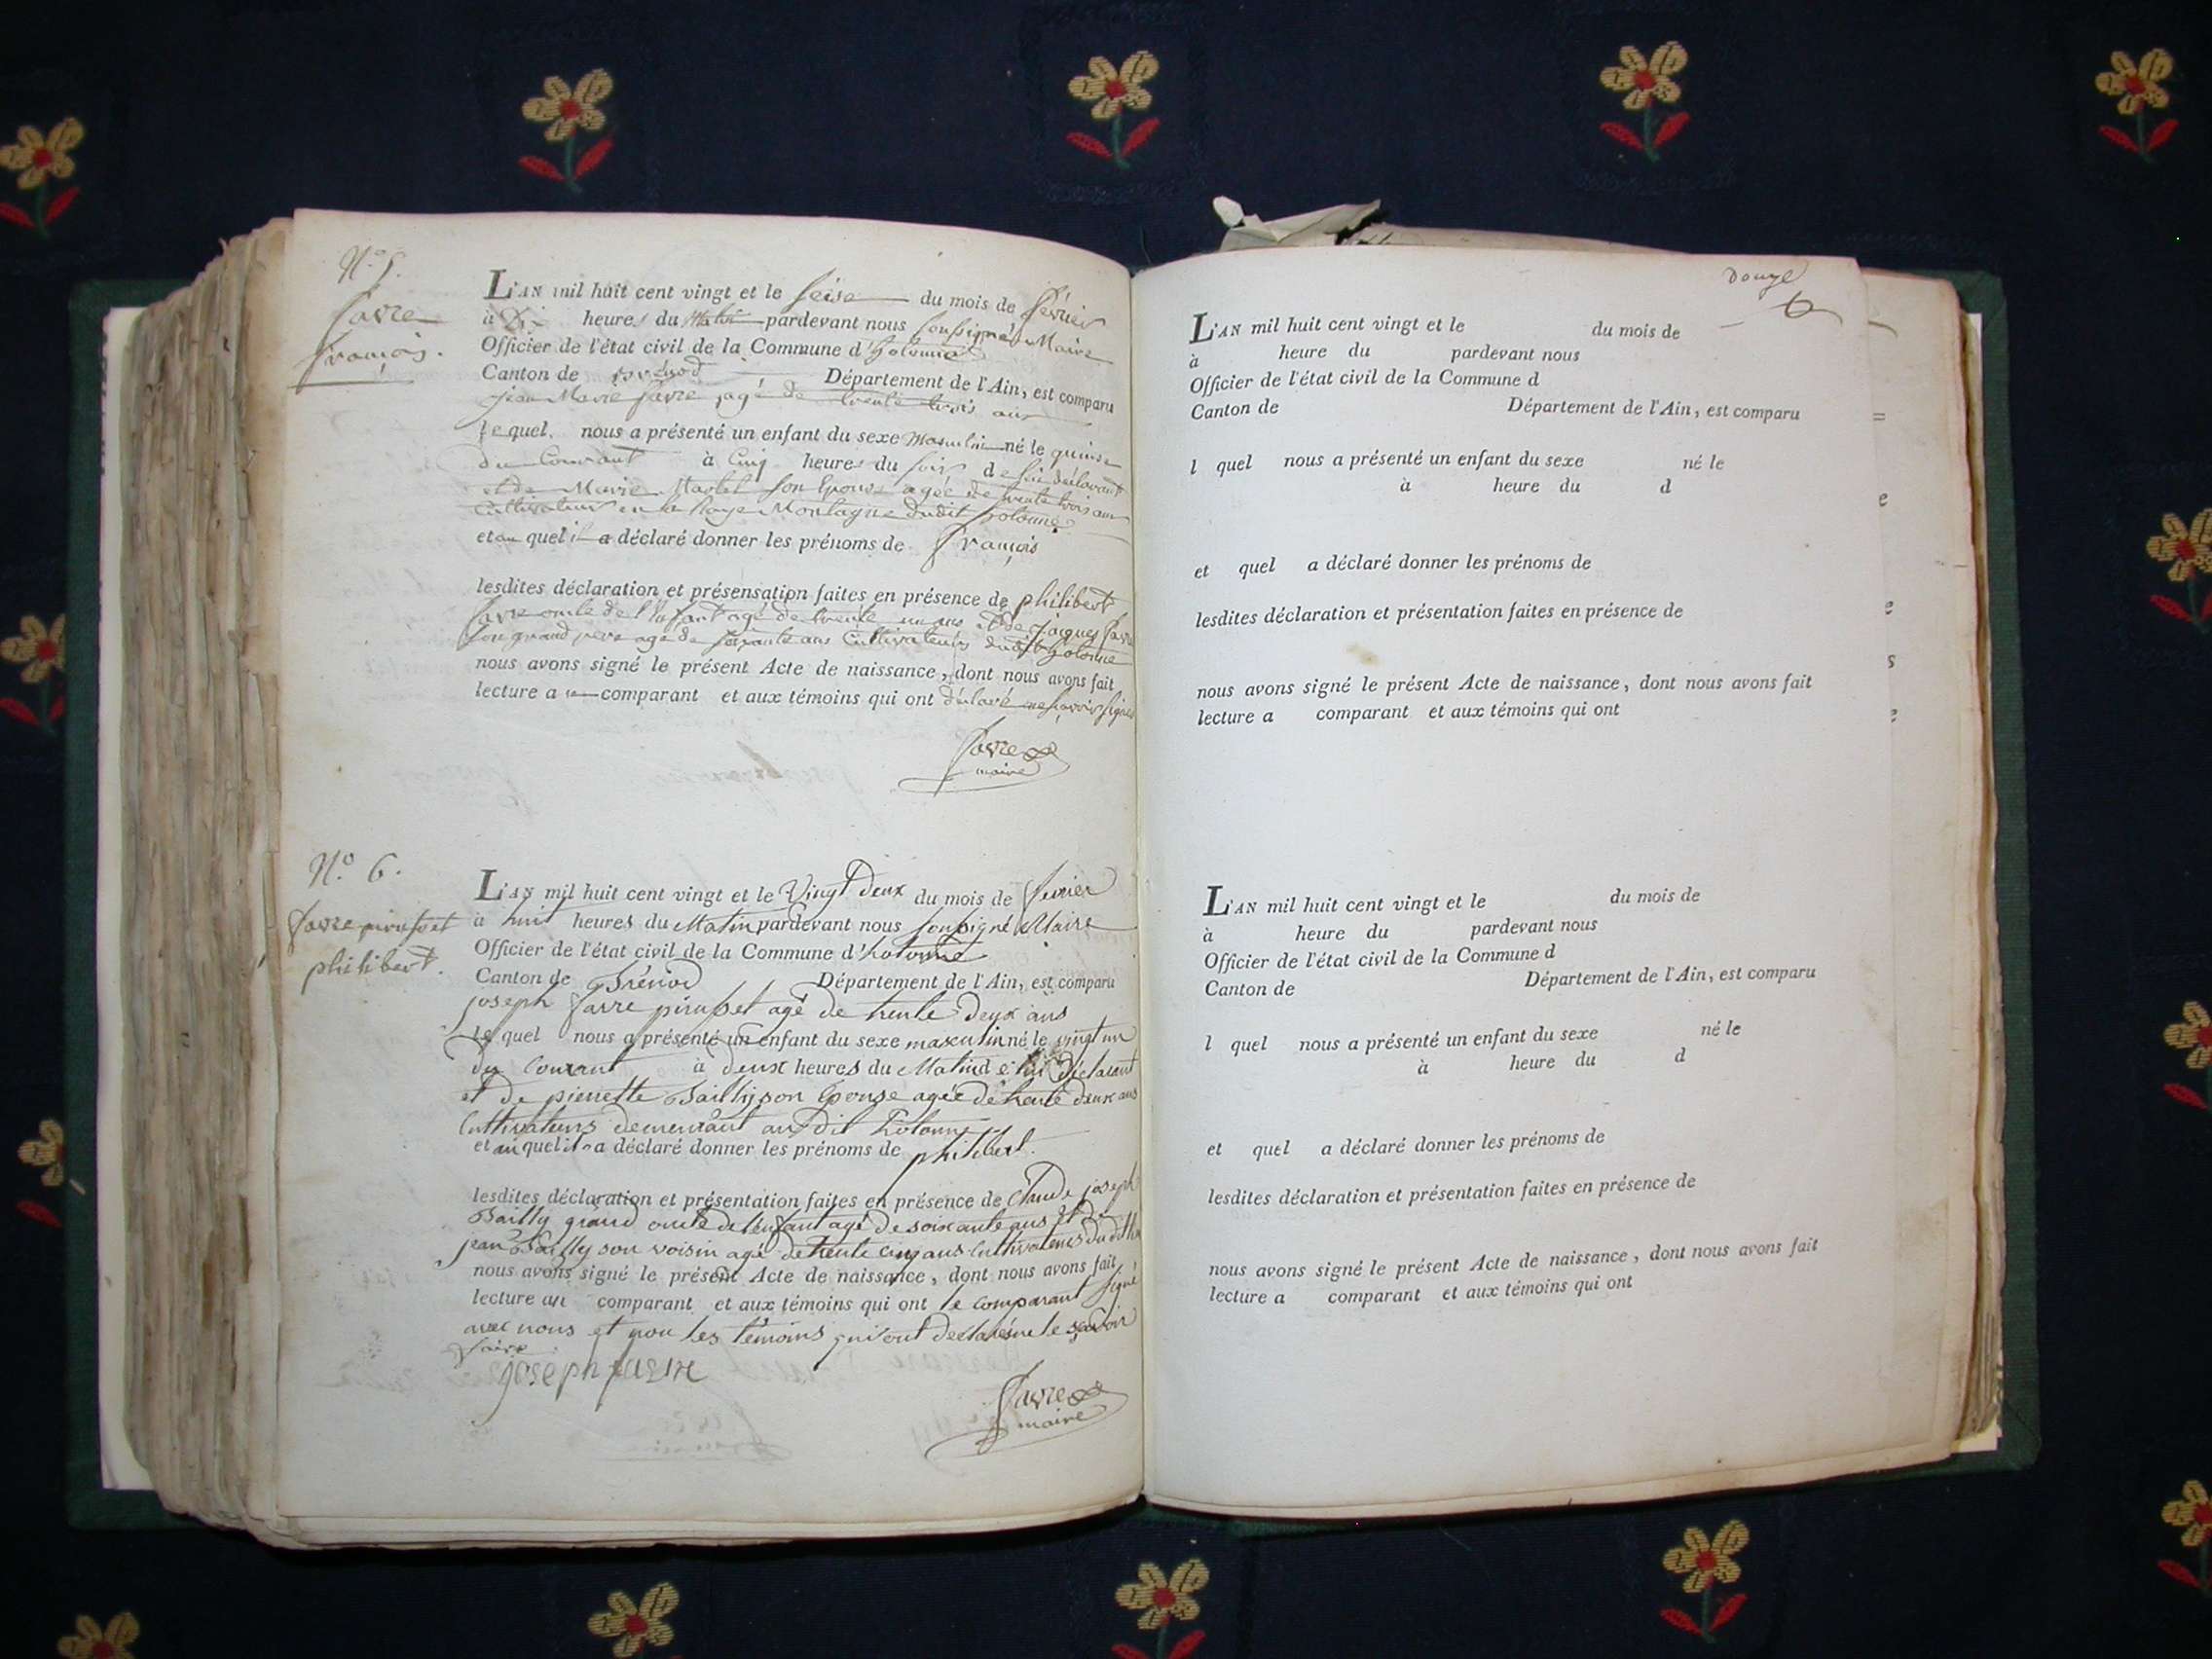 N.o 5.
favre
françois.
L'AN mil huit cent vingt et le seise du mois de février
à Dix heures du Matin pardevant nous soussigné Maire
Officier de l'état civil de la Commune d'hotonne
Canton de brenod Département de l'Ain, est comparu
jean Marie favre, agé de trente trois ans
lequel nous a présenté un enfant du sexe Masculin né le quinse
du Courant à Cinq heures du soir de lui déclarant
et de Marie Martel son Epouse agée de trente trois ans
Cultivateurs en la Montagne dudit hotonne
et au quel il a déclaré donner les prénoms de françois
lesdites déclaration et présensation faites en présence de philibert
favre oncle de l'Enfant agé de trente un ans et de jacques favre
son grand pere agé de soixante ans Cultivateurs dudit hotonne
nous avons signé le présent Acte de naissance, dont nous avons fait
lecture au comparant et aux témoins qui ont déclaré ne savoir signer
favre
maire
N.o 6.
favre pirusset
philibert.
L'AN mil huit cent vingt et le Vingt deux du mois de fevrier
à huit heures du Matin pardevant nous soussigné Maire
Officier de l'état civil de la Commune d'hotonne
Canton de Brénod Département de l'Ain, est comparu
joseph favre pirusset agé de trente deux ans
lequel nous a présenté un enfant du sexe masculin né le vingt un
du Courant à deux heures du Matin de lui Déclarant
et de pierrette Bailly son Epouse agée de trente deux ans
Cultivateurs demeurant au dit hotonne
et au quel il a déclaré donner les prénoms de philibert.
lesdites déclaration et présentation faites en présence de Claude joseph
Bailly grand oncle de l'enfant agé de soixante ans et de
jean Bailly son voisin agé de trente cinq ans Cultivateurs du dit ho
nous avons signé le présent Acte de naissance, dont nous avons fait
lecture au comparant et aux témoins qui ont le comparant signé
avec nous et non les témoins qui ont déclaré ne le savoir
faire.
joseph favre
favre
maire
douze
6
L'AN mil huit cent vingt et le du mois de
à heure du pardevant nous
Officier de l'état civil de la Commune d
Canton de Département de l'Ain, est comparu
l quel nous a présenté un enfant du sexe né le
à heure du d
et quel a déclaré donner les prénoms de
lesdites déclaration et présentation faites en présence de
nous avons signé le présent Acte de naissance, dont nous avons fait
lecture a comparant et aux témoins qui ont
L'AN mil huit cent vingt et le du mois de
à heure du pardevant nous
Officier de l'état civil de la Commune d
Canton de Département de l'Ain, est comparu
l quel nous a présenté un enfant du sexe né le
à heure du d
et quel a déclaré donner les prénoms de
lesdites déclaration et présentation faites en présence de
nous avons signé le présent Acte de naissance, dont nous avons fait
lecture a comparant et aux témoins qui ont